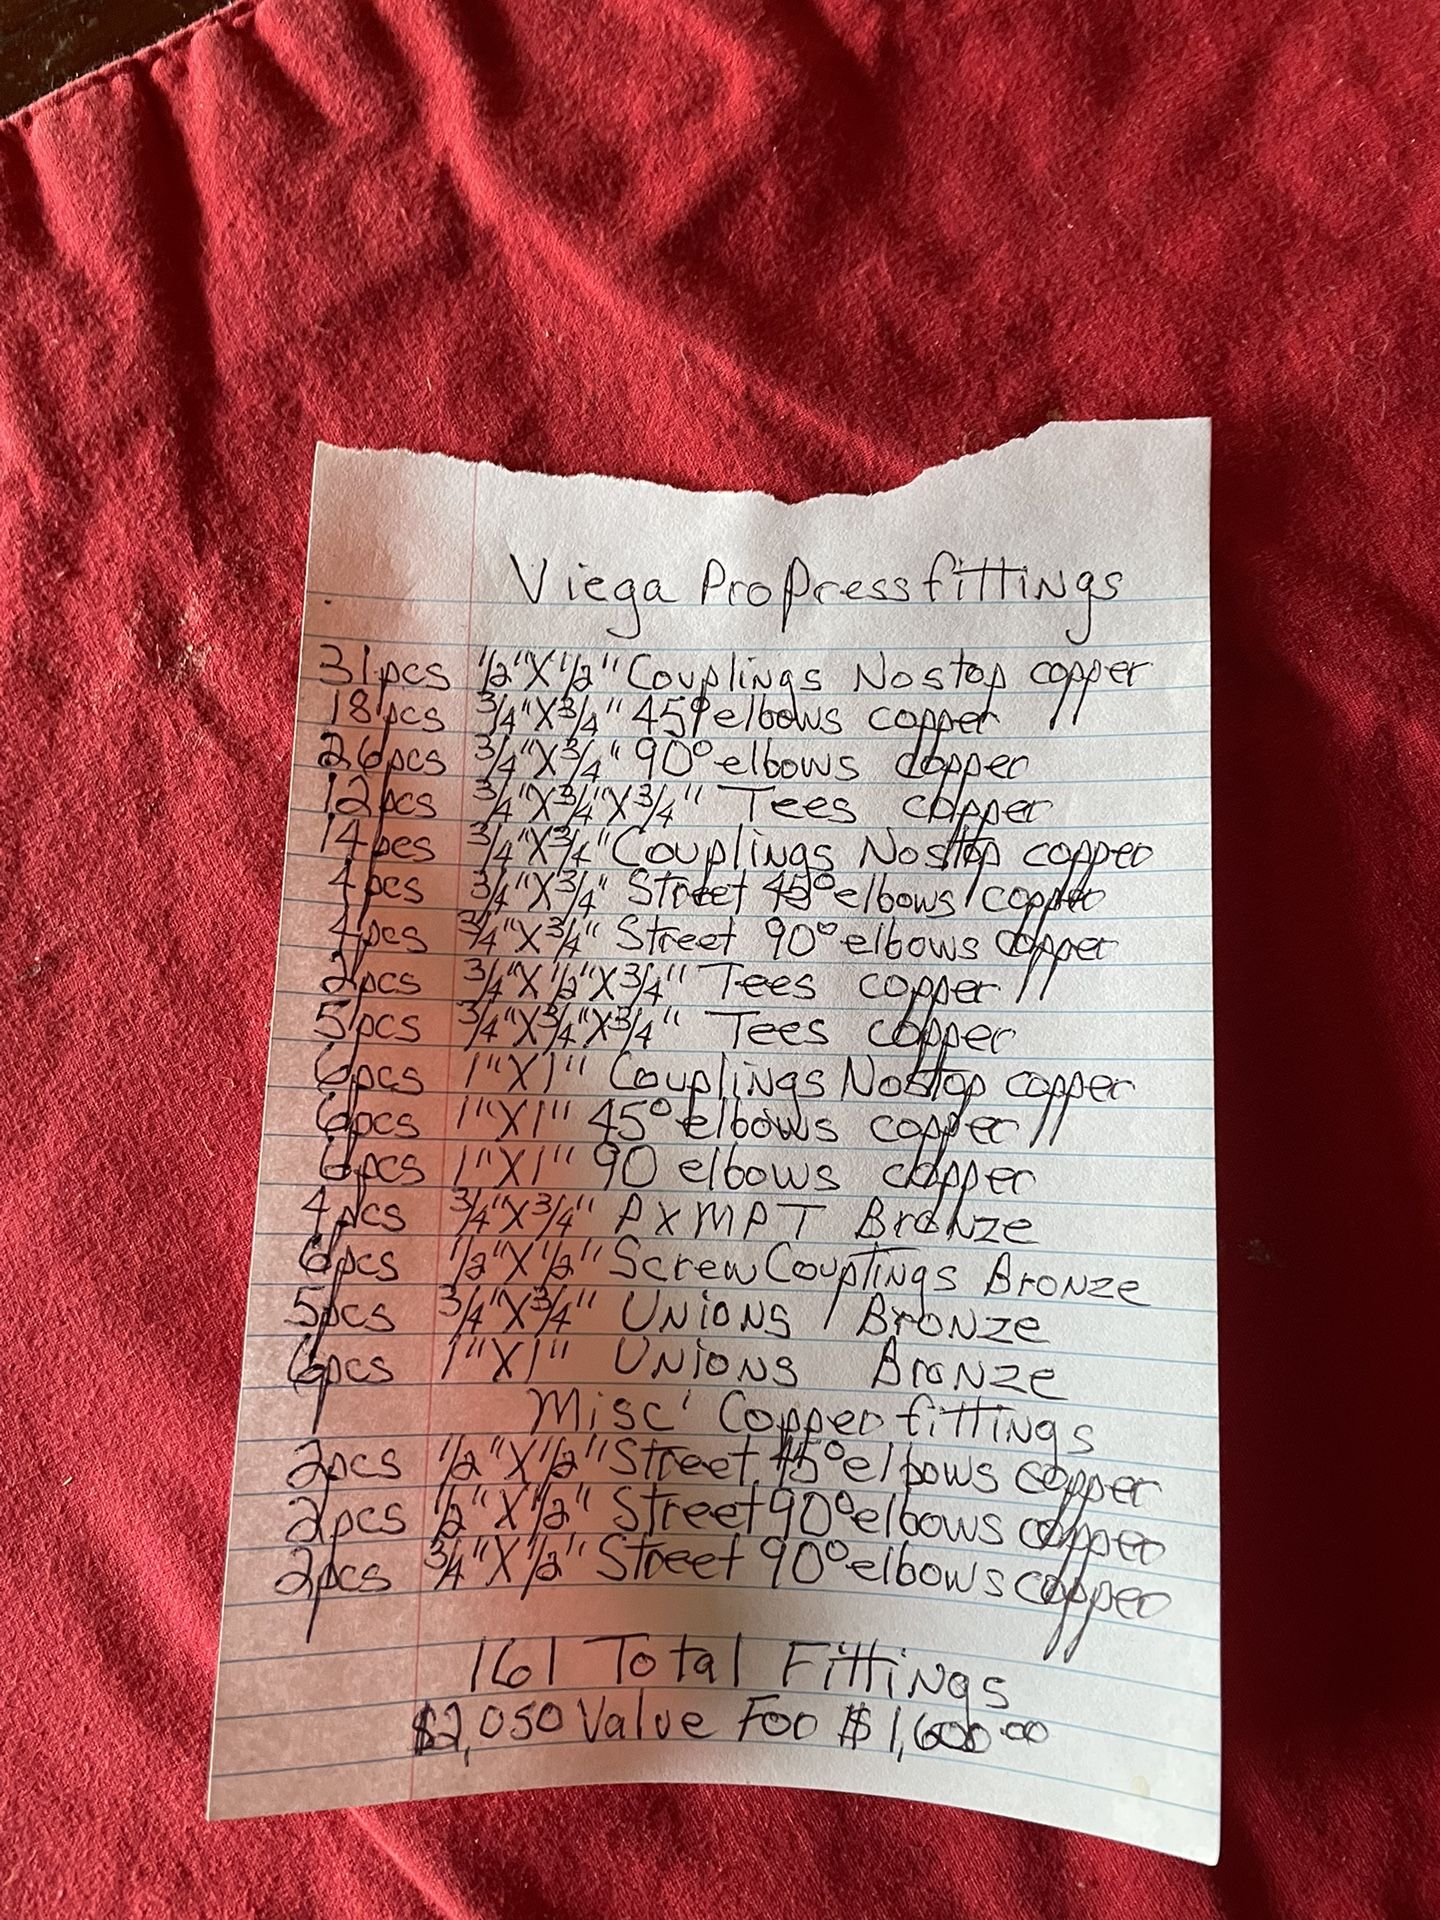 Viega ProPress fittings
31pcs 1/2"X1/2" Couplings No stop copper
18pcs 3/4"X3/4" 45° elbows copper
26pcs 3/4"X3/4" 90° elbows copper
12pcs 3/4"X3/4"X3/4" Tees copper
14pcs 3/4"X3/4" Couplings No stop copper
4pcs 3/4"X3/4" Street 45° elbows copper
4pcs 3/4"X3/4" Street 90° elbows copper
2pcs 3/4"X1/2"X3/4" Tees copper
5pcs 3/4"X3/4"X3/4" Tees copper
6pcs 1"X1" Couplings No stop copper
6pcs 1"X1" 45° elbows copper
6pcs 1"X1" 90 elbows copper
4pcs 3/4"X3/4" PXMPT Bronze
6pcs 1/2"X1/2" Screw Couptings Bronze
5pcs 3/4"X3/4" Unions Bronze
6pcs 1"X1" Unions Bronze
Misc' Copper fittings
2pcs 1/2"X1/2" Street 45° elbows copper
2pcs 1/2"X1/2" Street 90° elbows copper
2pcs 3/4"X1/2" Street 90° elbows copper
161 Total Fittings
$2,050 Value For $1,600.00